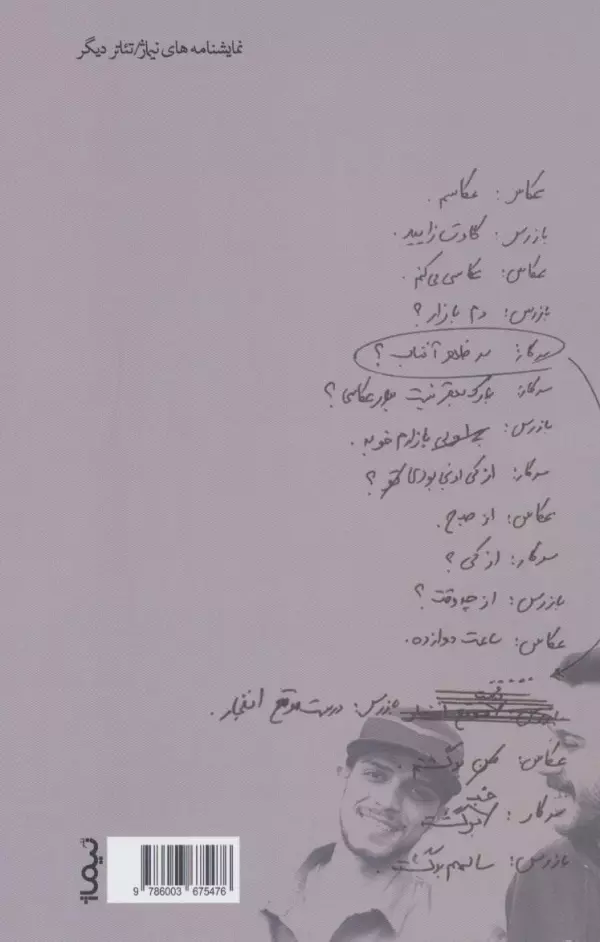 نمایشنامه های نیماژ/تئاتر دیگر
عکاس: عکاسم.
بازرس: کادت زایید.
عکاس: عکاسی می‌کنم.
بازرس: دم بازار؟
سرکار: سر ظهر آفتاب؟
سرکار: پارک بهتر نیست برای عکاسی؟
بازرس: بازارم خوبه.
سرکار: از کی اونجا بودی؟
عکاس: از صبح.
سرکار: از کی؟
بازرس: از چه وقت؟
عکاس: ساعت دوازده.
.....
بازرس: درست موقع انفجار.
عکاس: برگشتم.
سرکار: خب برگشته
بازرس: سالمم برگشته.
نیماژ
9 786003 675476